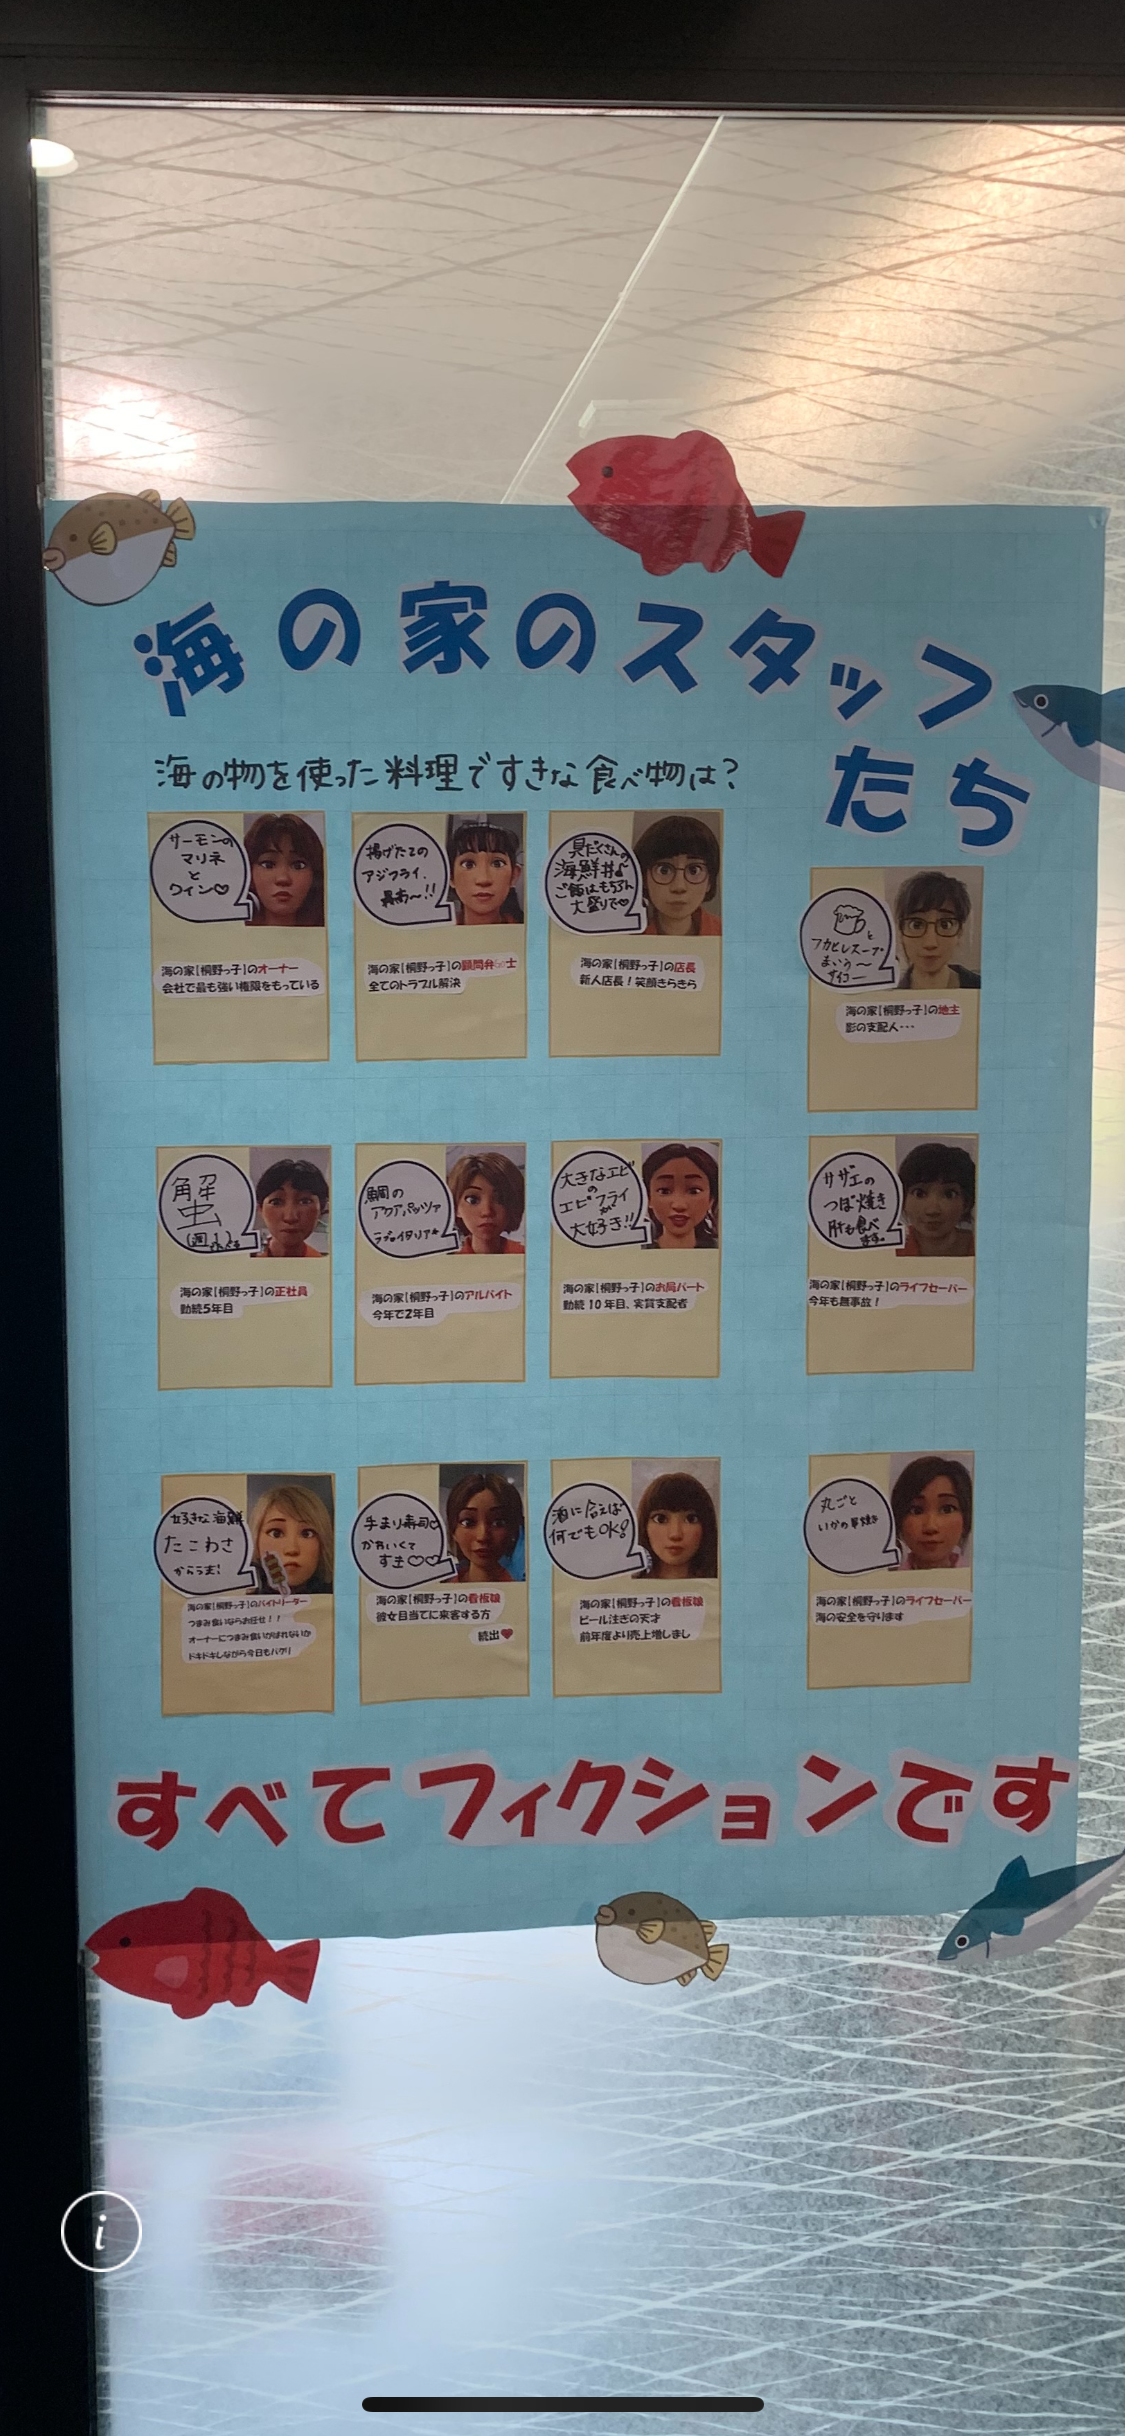 海の家のスタッフ
たち
海の物を使った料理ですきな食べ物は?
サーモンの
マリネ
と
ワイン♡
海の家[桐野っ子]のオーナー
会社で最も強い権限をもっている
揚げたての
アジフライ、
最高〜!!
海の家[桐野っ子]の顧問弁士
全てのトラブル解決
具だくさんの
海鮮丼♪
ご飯はもちろん
大盛りで♡
海の家[桐野っ子]の店長
新人店長!笑顔きらきら
と
フカヒレスープ
まいう〜
サイコー
海の家[桐野っ子]の地主
影の支配人・・・
蟹
海の家[桐野っ子]の正社員
勤続5年目
鯛の
アクアパッツァ
海の家[桐野っ子]のアルバイト
今年で2年目
大きなエビ
の
エビフライ
が
大好き!!
海の家[桐野っ子]のお局パート
勤続10年目、実質支配者
サザエの
つぼ焼き
肝も食べ
ます。
海の家[桐野っ子]のライフセーバー
今年も無事故!
好きな海鮮
たこわさ
からうま!
海の家[桐野っ子]のバイトリーダー
つまみ食いならお任せ!!
オーナーにつまみ食いがばれないか
ドキドキしながら今日もパクリ
手まり寿司♡
かわいくて
すき♡♡
海の家[桐野っ子]の看板娘
彼女目当てに来客する方
続出♥
酒に合えば
何でもOK!
海の家[桐野っ子]の看板娘
ビール注ぎの天才
前年度より売上増しまし
丸ごと
いかの串焼き
海の家[桐野っ子]のライフセーバー
海の安全を守ります
すべてフィクションです